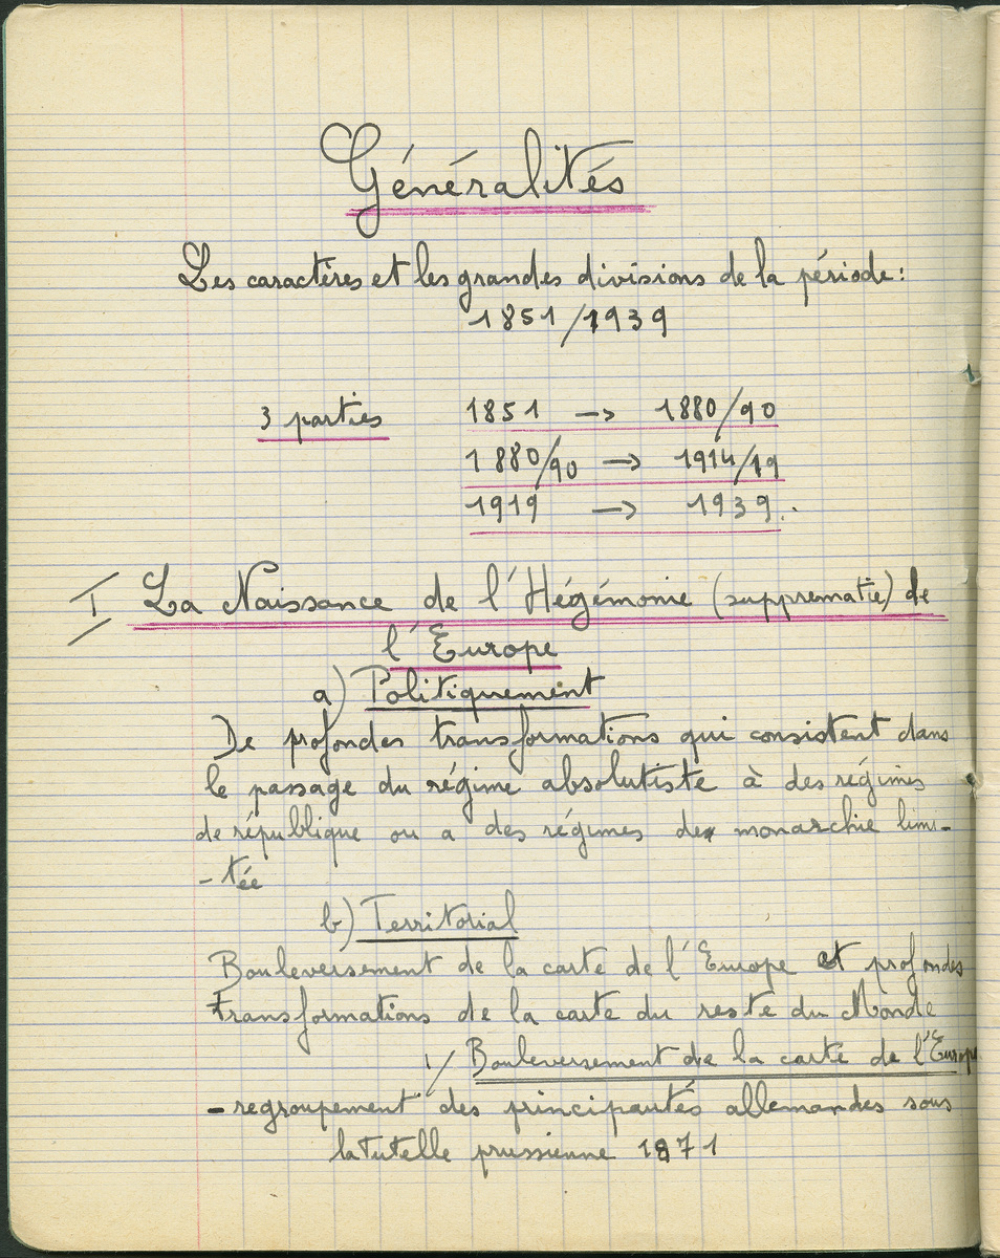 Généralités
Les caractères et les grandes divisions de la période :
1851/1939
3 parties 1851 → 1880/90
1880/90 → 1914/19
1919 → 1939.
I La Naissance de l'Hégémonie (supprematie) de
l'Europe
a) Politiquement
De profondes transformations qui consistent dans
le passage du régime absolutiste à des régimes
de république ou a des régimes de monarchie limi-
-tée
b) Territorial
Bouleversement de la carte de l'Europe et profondes
transformations de la carte du reste du Monde
1/ Bouleversement de la carte de l'Europe
- regroupement des principautés allemandes sous
la tutelle prussienne 1871